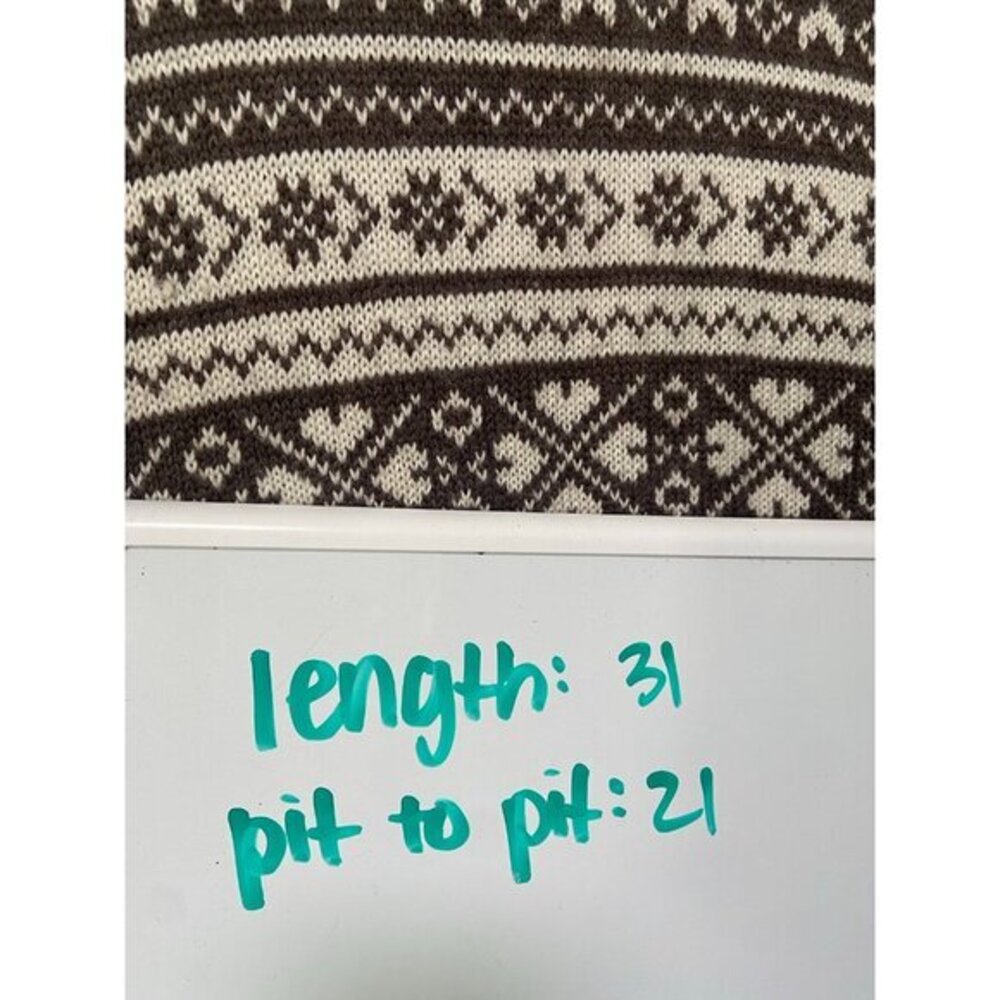 length: 31
pit to pit: 21